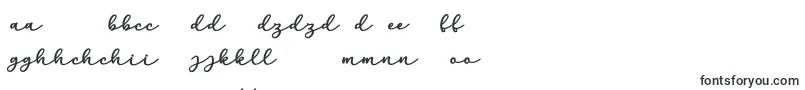 aa bbcc dd dzdzd d ee ff
gghhchchii jjkkll mmnn oo
fontsforyou.com